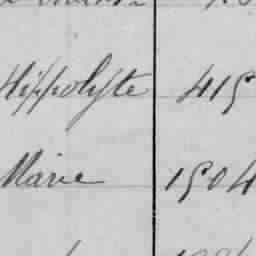 Hippolyte 415
Marie 1504